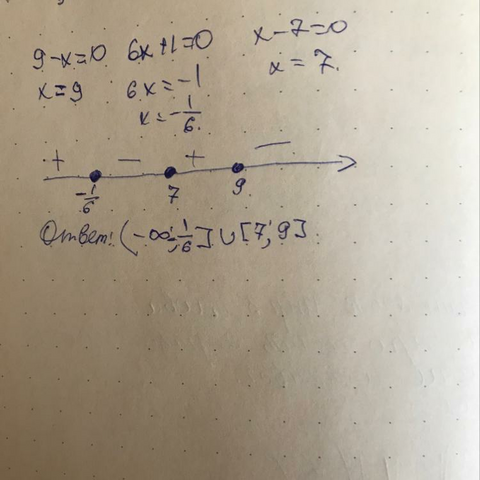 9-x=0 6x+1=0 x-7=0
x=9 6x=-1 x=7.
x=-1/6.
+ - + -
-1/6 7 9
Ответ: (-∞; -1/6] ∪ [7; 9]